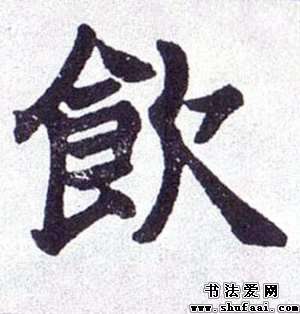 飲
书法爱网
www.shufaai.com